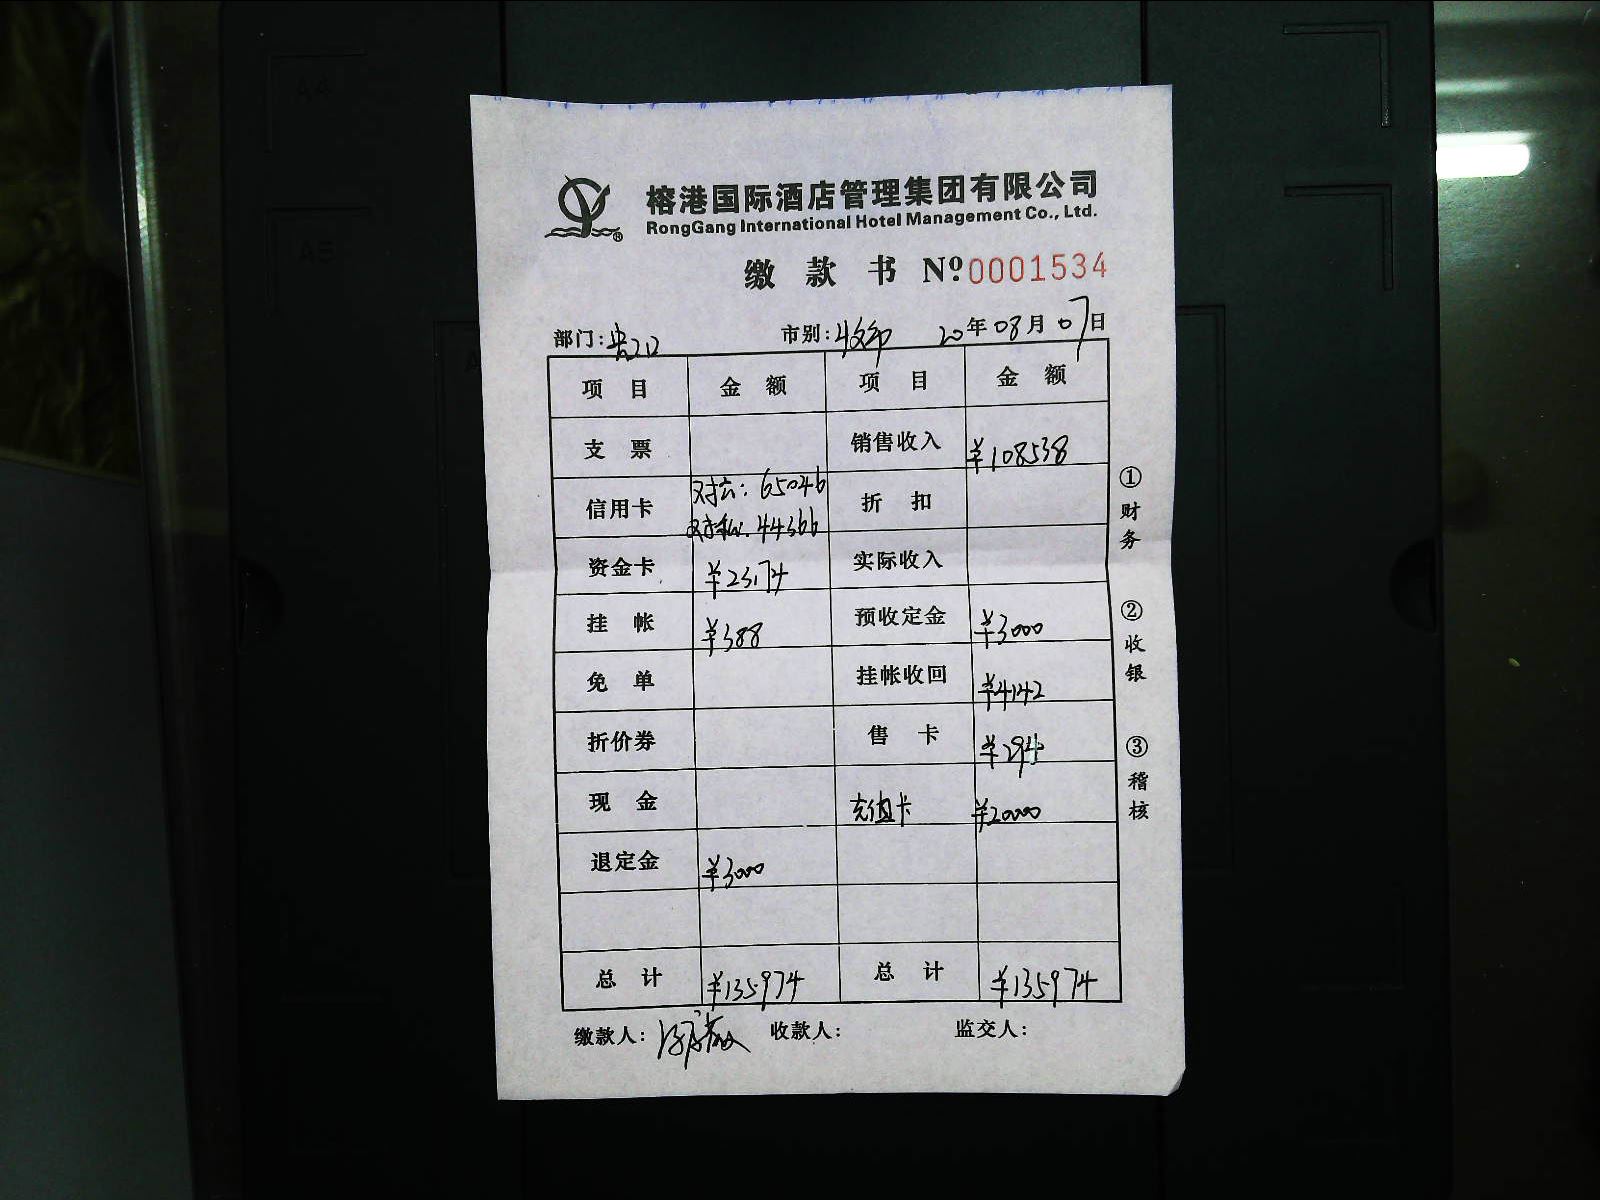 榕港国际酒店管理集团有限公司
RongGang International Hotel Management Co., Ltd.
缴 款 书 Nº 0001534
部门: 市别: 20年08月07日
项 目 金 额 项 目 金 额
支 票 销售收入 ¥108538
信用卡 对公: 65046 折 扣
对私: 44366
资金卡 ¥23174 实际收入
挂 帐 ¥388 预收定金 ¥3000
免 单 挂帐收回 ¥4142
折价券 售 卡 ¥294
现 金 充值卡 ¥20000
退定金 ¥3000
总 计 ¥135974 总 计 ¥135974
缴款人: 收款人: 监交人:
①财务
②收银
③稽核
A4
A5